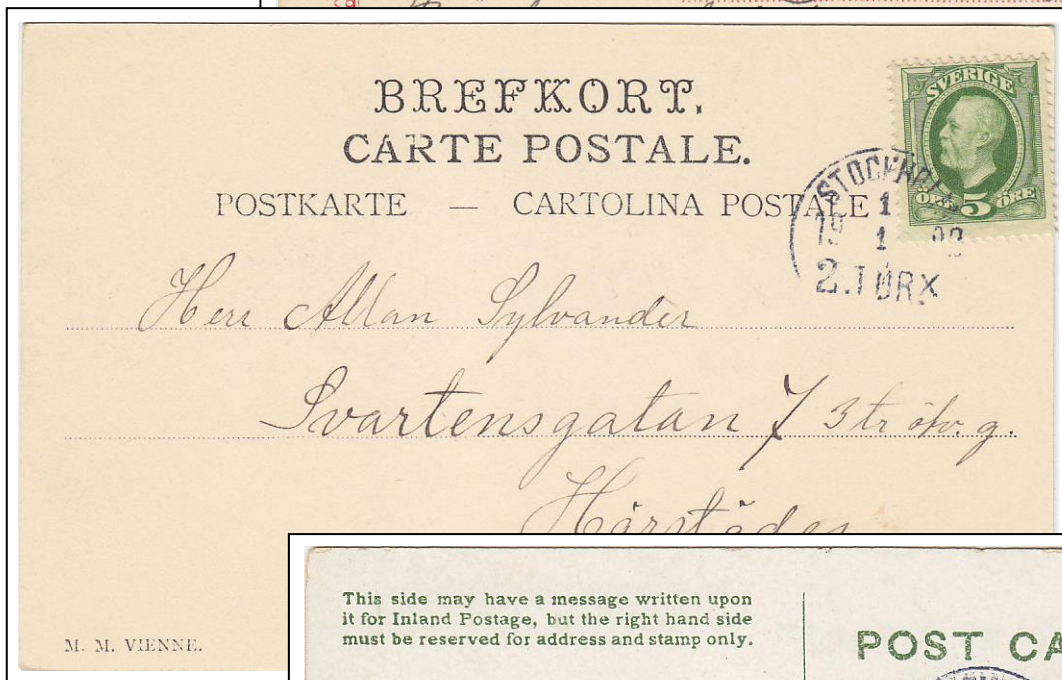 BREFKORT.
CARTE POSTALE.
POSTKARTE — CARTOLINA POSTALE
SVERIGE
ÖRE 5 ÖRE
STOCKHOLM
1
19 1 02
2.TUR X
Herr Allan Sylvander
Svartensgatan 7 3 tr öfv. g.
Härstädes
M. M. VIENNE.
This side may have a message written upon
it for Inland Postage, but the right hand side
must be reserved for address and stamp only.
POST CA